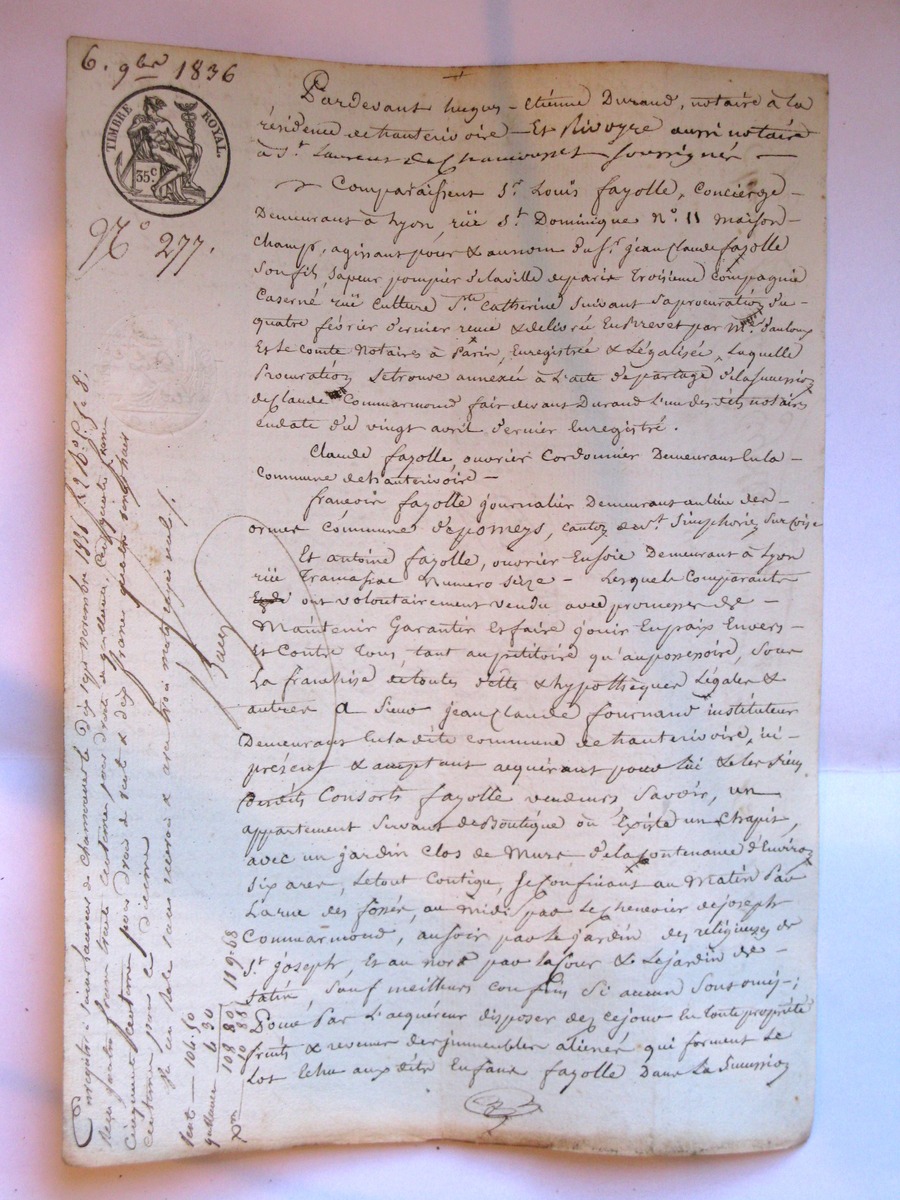 6. 9bre 1836
TIMBRE ROYAL.
35c
No 277.
Pardevant hugues-Etienne Durand, notaire à la
résidence de hauterivoire - Et Rivoyre aussi notaire
à St Laurent de Chamousset soussignés -
Comparaissent Sr Louis fayolle, Concierge -
Demeurant à Lyon, rüe St Dominique No 11 Maison -
champ, agissant pour & au nom du Sr jean Claude fayolle
son fils, sapeur pompier de la ville de paris Troisième Compagnie
Caserné rüe Culture Ste Catherine suivant sa procuration du -
quatre février dernier remise & délivrée En Brevet par Me
Et Le Comte Notaires à Paris, Enregistrée & Légalisée, Laquelle
Procuration se trouve annexée à L'acte de partage de la succession
de Claude Commarmond fait devant Durand L'un des dits notaires
en date du vingt avril dernier Enregistré.
Claude fayolle, ouvrier Cordonnier Demeurant En la -
Commune de hauterivoire -
francois fayolle journalier Demeurant au lieu des -
ormes Commune de pomeys, canton de St Simphorien Sur Coise
Et antoine fayolle, ouvrier En soie Demeurant à Lyon
rüe Tramassac numero seize - Lesquels Comparants
ont volontairement vendu avec promesses de -
Maintenir Garantir Et faire jouir En paix Envers -
Et Contre Tous, tant au pétitoire qu'au possessoire, sous
La franchise de toutes dettes & hypothèques Légales &
autres A Sieur jean Claude fournand instituteur
Demeurant En la dite commune de hauterivoire, ici
présent & acceptant acquérant pour lui & les siens
des dits Consorts fayolle vendeurs, Savoir, un
appartement servant de Boutique où Existe un Chapit,
avec un jardin clos de Murs, de la Contenance d'Environ
six ares, Le tout Contigu, se Confinant au Matin Par
La rue des fossés, au Midi par Le Chenevier de joseph
Commarmond, au soir par le jardin des religieuses de
St joseph, Et au nord par la Cour & Le jardin de -
fatin, Sauf meilleurs confins Si aucun sont omis -;
Pour Par L'acquéreur disposer dez ce jour En toute propriété
fruits & revenus des immeubles aliénés qui forment Le
Lot Echu aux dits Enfans fayolle Dans La succession
Enregistré à Saint Laurent de Chamousset le Dix sept novembre 1836
francs trente centimes pour droit de quittance, Cinquante
cinquante centimes pour droit de vent & dix francs quatre vingt huit
centimes pour le Décime
vent - 106.50
quittance 6 30
108 80
10 88
119.68